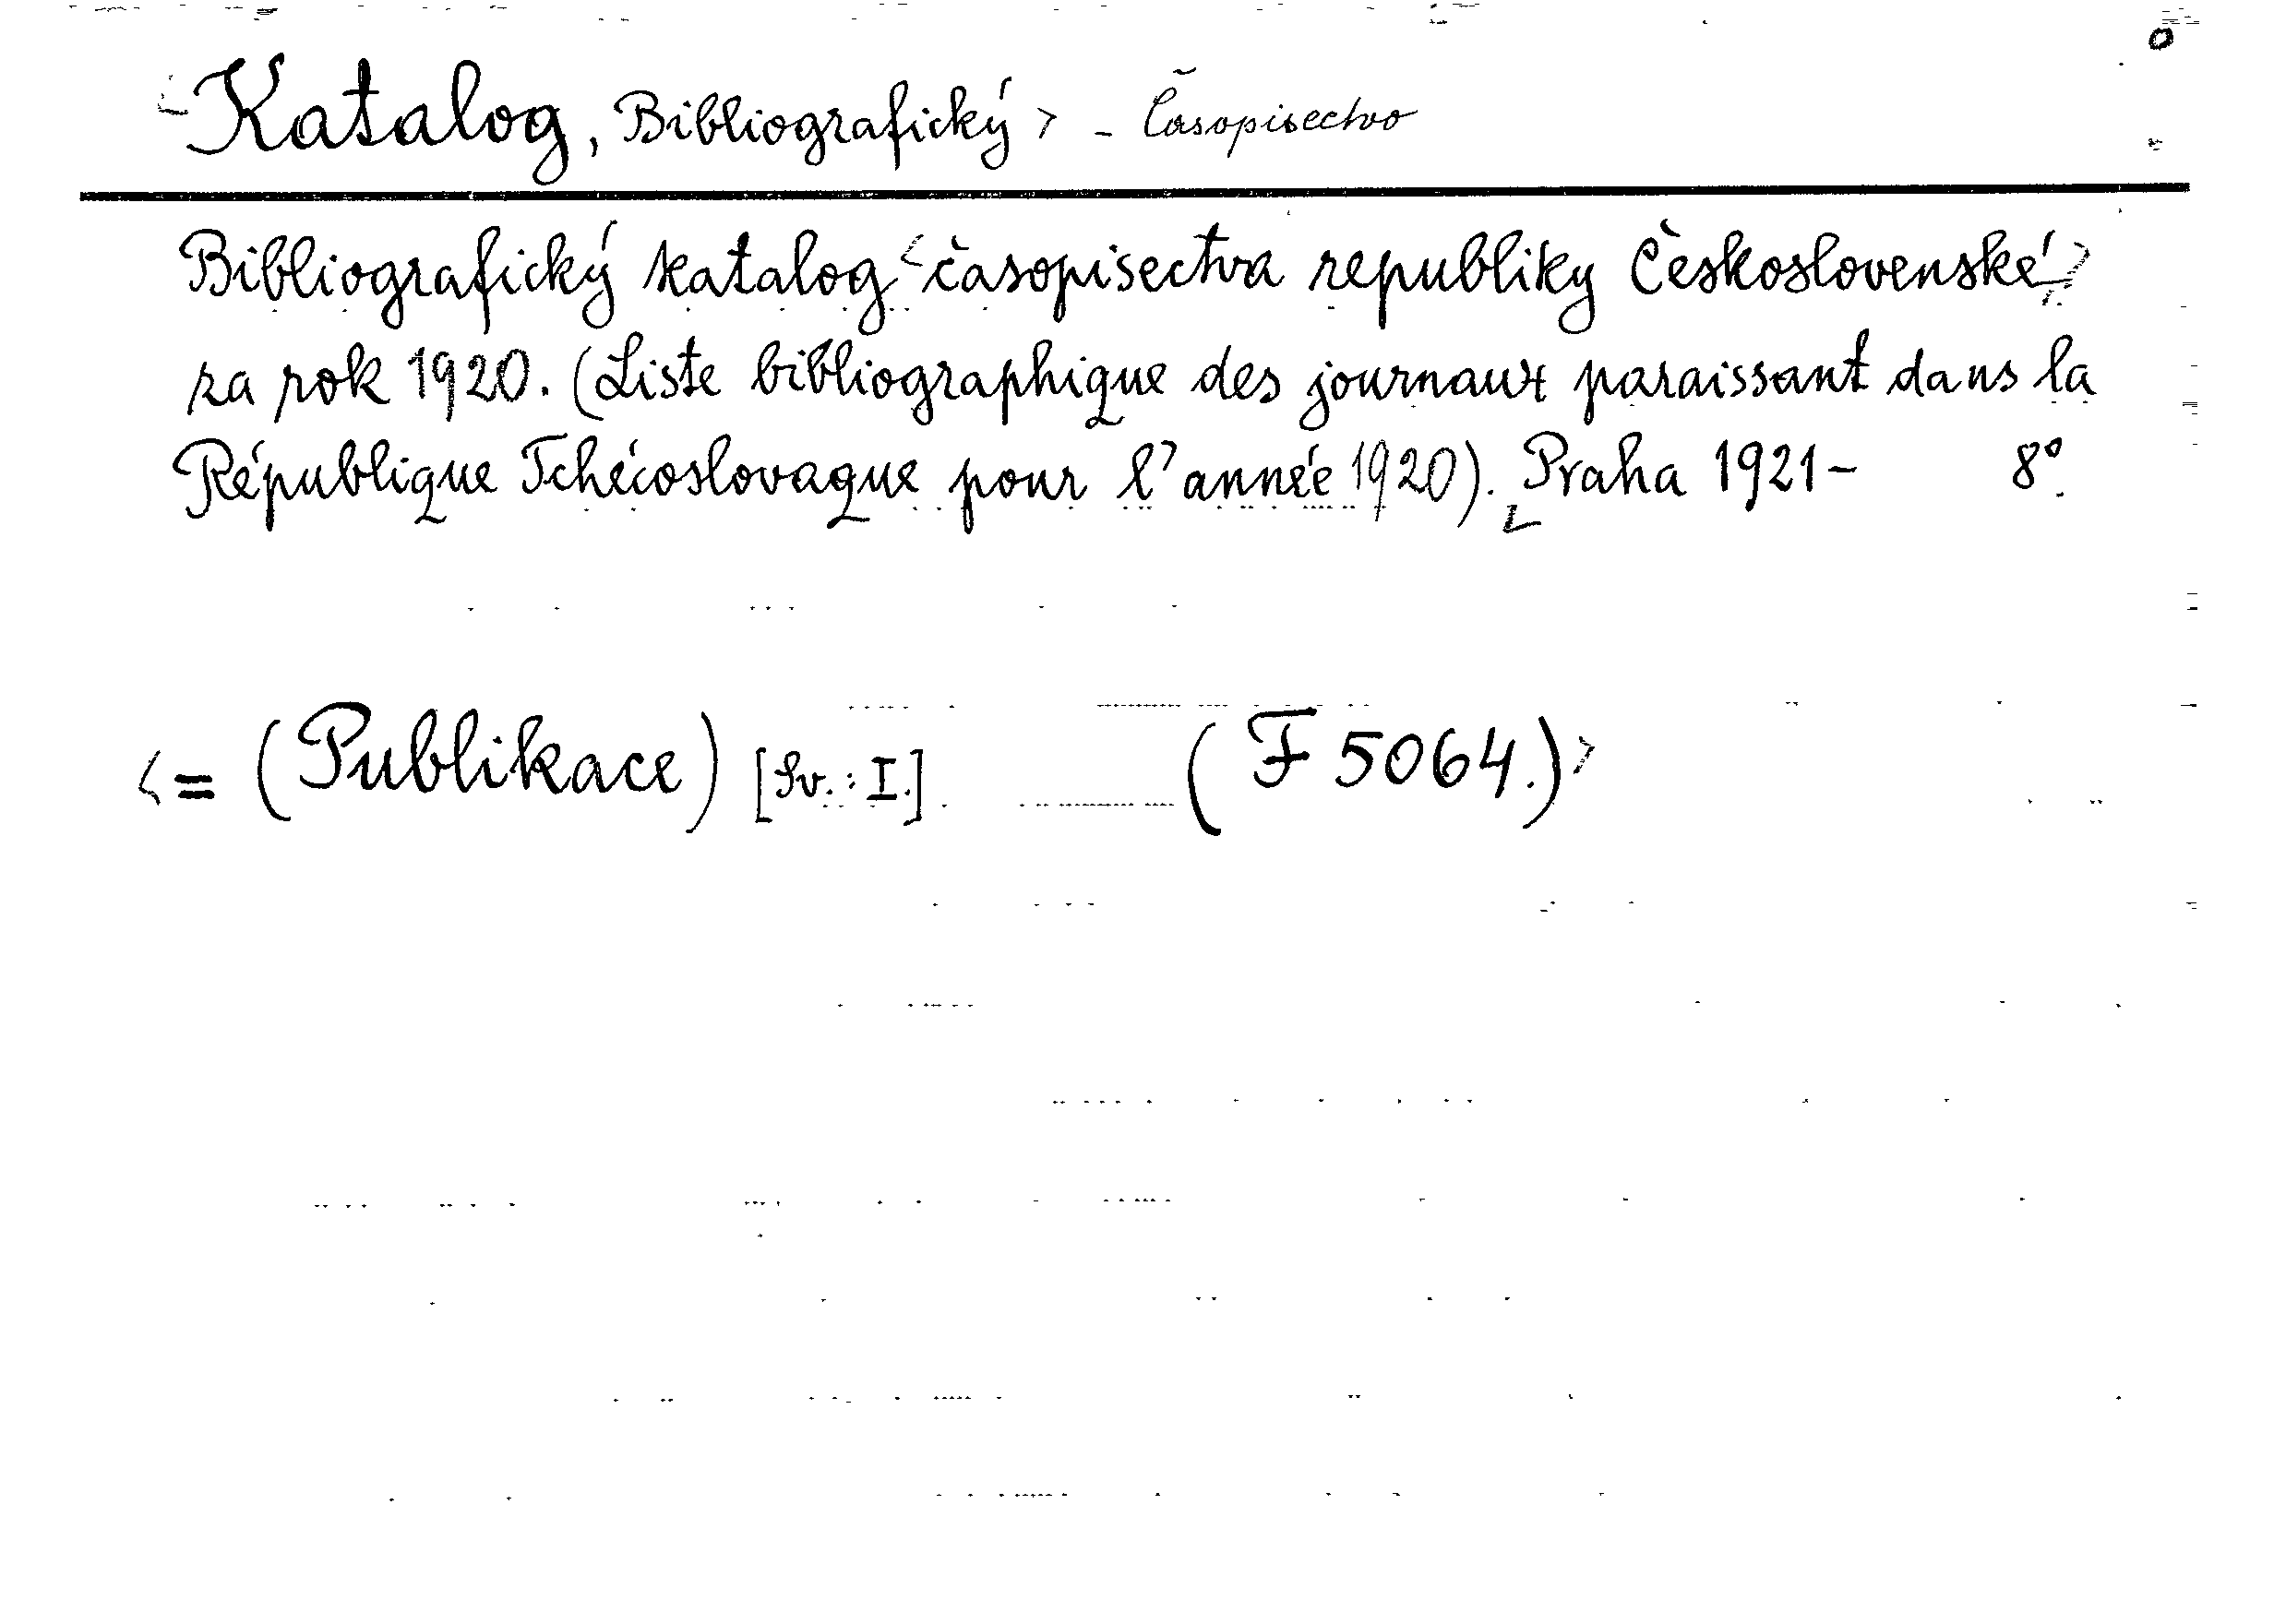 <Katalog, Bibliografický> - Časopisectvo
Bibliografický katalog <časopisectva republiky Československé>
za rok 1920. (Liste bibliographique des journaux paraissant dans la
République Tchécoslovaque pour l'année 1920). Praha 1921- 8°.
<= (Publikace) [Sv.: I.] (F 5064.)>